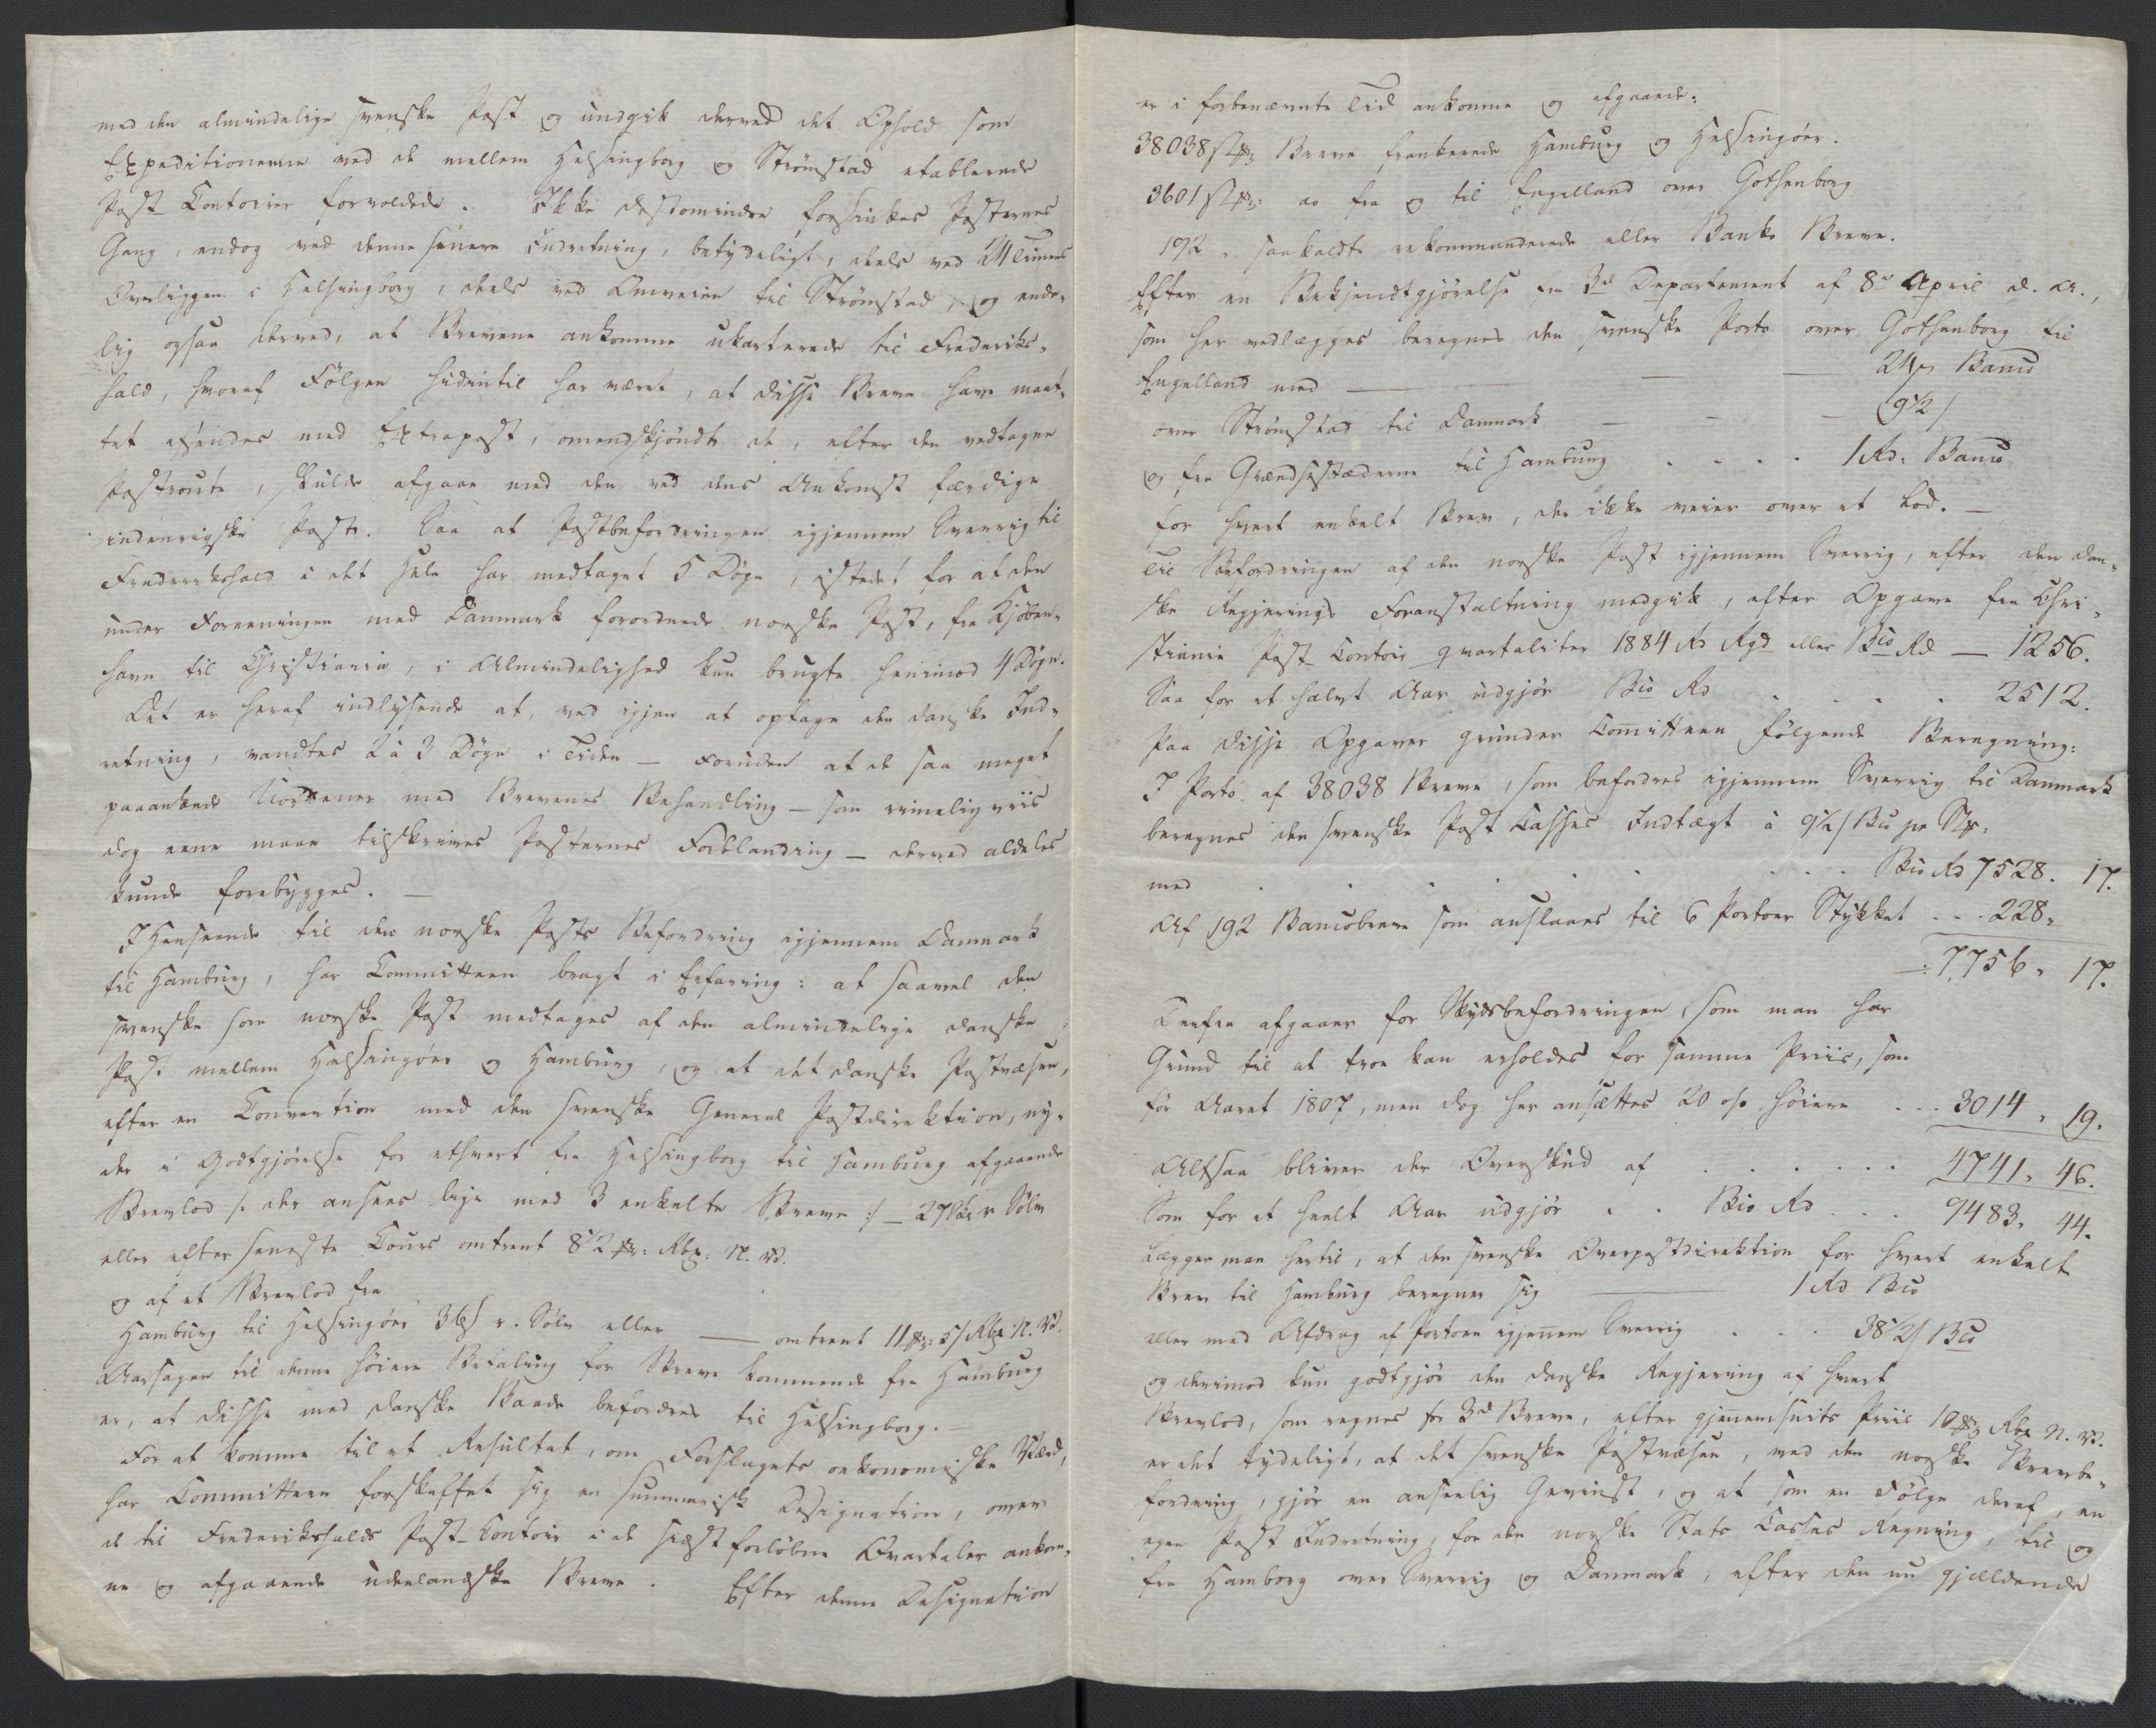 med den almindelige svenske Post og undgik derved det Ophold som
Expeditionerne ved de mellem Helsingborg og Strömstad etablerede
Post-Contorier forvoldede. Ikke destomindre forsinkes Posternes
Gang, endog ved denne senere Indretning, betydeligt, deels ved 24 Timers
Overliggen i Helsingborg, deels ved Omveien til Strömstad, og ende-
lig ogsaa derved, at Brevene ankomme ukarterede til Frederiks-
hald, hvoraf Fölgen hidintil har været, at disse Breve have maat-
tet afsendes med Extrapost, omendskjöndt de, efter den vedtagne
Postroute, skulde afgaae med den ved dens Ankomst færdige
indenrigske Post. Saa at Postbefordringen igjennem Sverrig til
Frederikshald i det Hele har medtaget 5 Dögn, istedet for at den
under Foreeningen med Danmark forordnede norske Post, fra Kjöben-
havn til Christiania, i Almindelighed kun brugte henimod 4 Dögn.
Det er heraf indlysende at, ved igjen at optage den danske Ind-
retning, vandtes 2 à 3 Dögn i Tiden — foruden at de saa meget
paaankede Uordener med Brevenes Behandling — som rimeligviis
dog ene maae tilskrives Posternes Forblanding — derved aldeles
kunde forebygges. —
I Henseende til den norske Posts Befordring igjennem Danmark
til Hamburg, har Committeen bragt i Erfaring: at saavel den
svenske som norske Post medtages af den almindelige danske
Post mellem Helsingöer og Hamburg, og at det danske Postvæsen,
efter en Convention med den svenske General Postdirektion, ny-
der i Godtgjörelse for ethvert fra Helsingborg til Hamburg afgaaende
Brevlod /: der ansees lige med 3 enkelte Breve :/ — 27 r Sölv
eller efter seneste Cours omtrent 8 1/2 Rbz: N. V.
og af et Brevlod fra
Hamburg til Helsingöer 36 r. Sölv eller — omtrent 11 5/ Rbz N. V.
Aarsagen til denne höiere Betaling for Breve kommende fra Hamburg
er, at disse med danske Baade befordres til Helsingborg. —
For at komme til et Resultat, om Forslagets oekonomiske Værd,
har Committeen forskaffet sig en summarisk Designation, over
de til Frederikshalds Post-Contoir i de sidst forlöbne Qvartaler ankom-
ne og afgaaende udenlandske Breve. Efter denne Designation
er i forbenævnte Tid ankomne og afgaaede:
38038 Stkr Breve frankerede Hamburg og Helsingöer.
3601 Stkr: do fra og til Engelland over Gothenborg
192 „ saakaldte rekommanderede eller Banko Breve.
Efter en Bekjendtgjörelse fra 3d Departement af 8de April d. A.,
som her vedlægges beregnes den svenske Porto over Gothenborg til
Engelland med — — — 24 s Banco
over Strömstad til Danmark — — — 9 1/2 /
og fra Grændsestæderne til Hamburg . . . . 1 Rd: Banco
for hvert enkelt Brev, der ikke veier over et Lod. —
Til Befordringen af den norske Post igjennem Sverrig, efter den dan-
ske Regjerings Foranstaltning medgik, efter Opgave fra Chri-
stiania Post-Contoir qvartaliter 1884 Rd Rgd eller Bco Rd — 1256.
Saa for et halvt Aar udgjör Bco Rd . . . . 2512.
Paa disse Opgaver grunder Comitteen fölgende Beregning:
I Porto af 38038 Breve, som befordres igjennem Sverrig til Danmark
beregnes den svenske Post Casses Indtægt à 9 1/2/ Bco pr Stk.
med . . . . . . . . Bco Rd 7528. 17.
Af 192 Bancobreve som anslaaes til 6 Portoer Stykket . . . 228 „
—: 7,756 „ 17.
Derfra afgaaer for Skydsbefordringen, som man har
Grund til at troe kan erholdes for samme Priis, som
för Aaret 1807, men dog her ansættes 20 o/o höiere . . . 3014 „ 19.
Altsaa bliver der Overskud af . . . . . . 4741 „ 46.
Som for et heelt Aar udgjör . . Bco Rd . . . 9483. 44.
Lægger man hertil, at den svenske Overpostdirektion for hvert enkelt
Brev til Hamburg beregner sig — 1 Rd Bco
eller med Afdrag af Portoen igjennem Sverrig . . . 38 1/2/ Bco
og derimod kun godtgjör den danske Regjering af hvert
Brevlod, som regnes for 3de Breve, efter gjennemsnits Priis 10 Rbz N. V.
er det tydeligt, at det svenske Postvæsen, ved den norske Brevbe-
fordring, gjör en anseelig Gevinst, og at som en Fölge deraf, en
egen Post Indretning, for den norske Stats Casses Regning, til og
fra Hamborg over Sverrig og Danmark, efter den nu gjældende